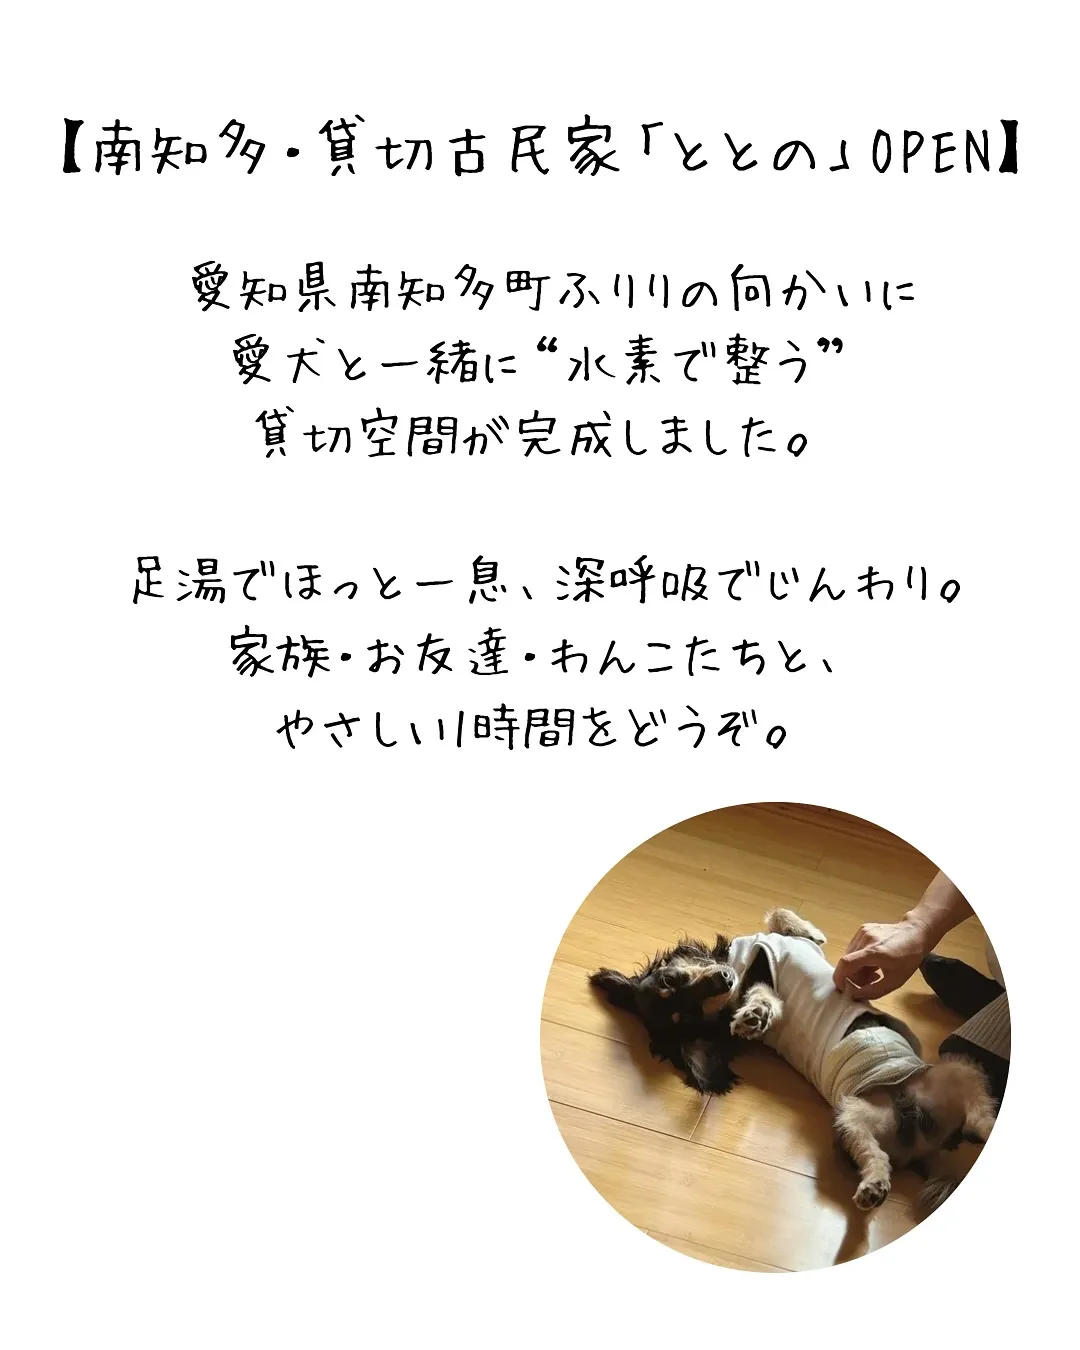 【南知多・貸切古民家「ととの」OPEN】
愛知県南知多町ふりりの向かいに
愛犬と一緒に“水素で整う”
貸切空間が完成しました。
足湯でほっと一息、深呼吸でじんわり。
家族・お友達・わんこたちと、
やさしい1時間をどうぞ。